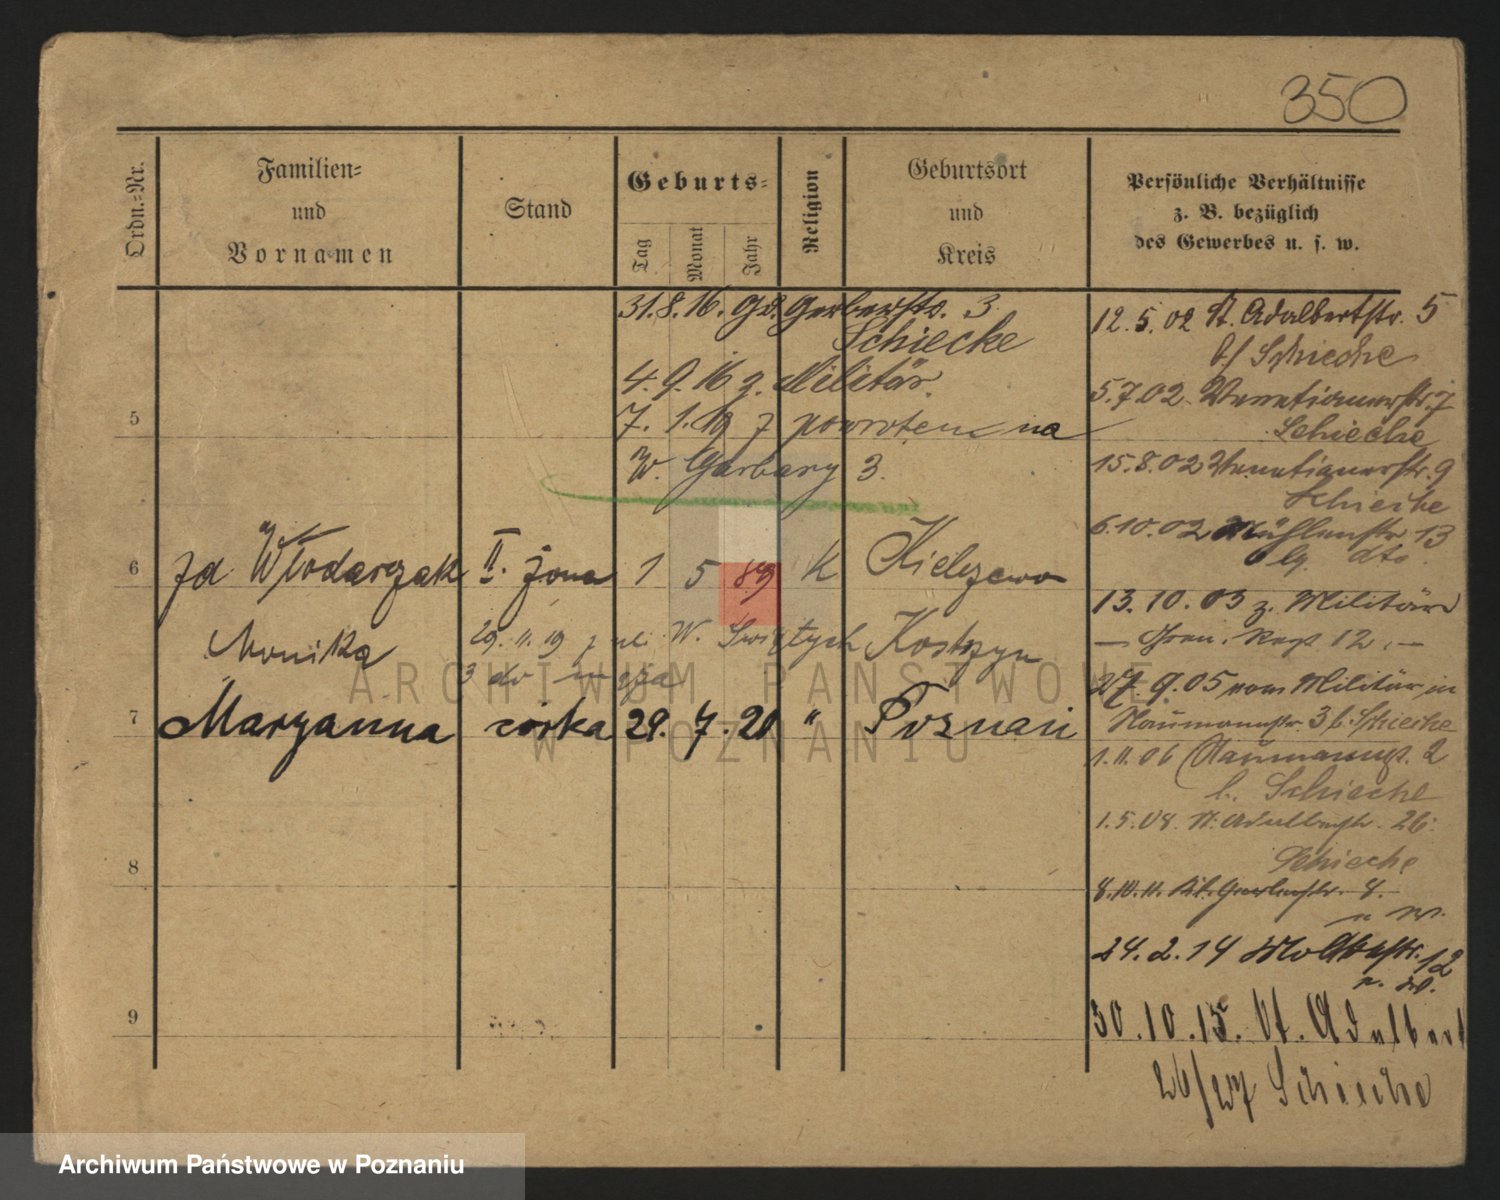 350
Ordn.-Nr.
Familien-
und
Vornamen
Stand
Geburts-
Tag
Monat
Jahr
Religion
Geburtsort
und
Kreis
Persönliche Verhältnisse
z. B. bezüglich
des Gewerbes u. s. w.
31.8.16. Gr. Gerberstr. 3
Schiecke
4.9.16 z. Militär.
7. 1.19 z powrotem na
W. Garbary 3.
5
6
zd. Włodarczak II. żona 1 5 89 K Kielczewo
Monika
29.11.19 z ul. W. Świętych Kostrzyn
3 do
7
Marzanna córka 29. 7. 20 " Poznań
8
9
12.5.02 St. Adalbertstr. 5
b/ Schiecke
5.7.02 Venetianerstr. 7
Schiecke
15.8.02 Venetianerstr. 9
Schiecke
6.10.02 Mühlenstr. 13
dto.
13.10.03 z. Militär
— Gren. Regt. 12. —
27.9.05 vom Militär in
Naumannstr. 3 b. Schiecke
1.11.06 Naumannstr. 2
b. Schiecke
1.5.08. St. Adalbertstr. 26.
Schiecke
8.10.11. Gr. Gerberstr. 8.
24.2.14 Moltkestr. 12
30.10.15. St. Adalbert
26/27 Schiecke
ARCHIWUM PAŃSTWOWE
W POZNANIU
Archiwum Państwowe w Poznaniu